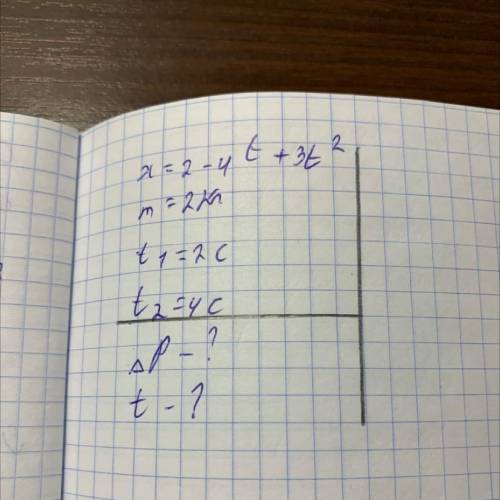 x = 2 - 4t + 3t²
m = 2кг
t₁ = 2 с
t₂ = 4 с
ΔP - ?
t - ?